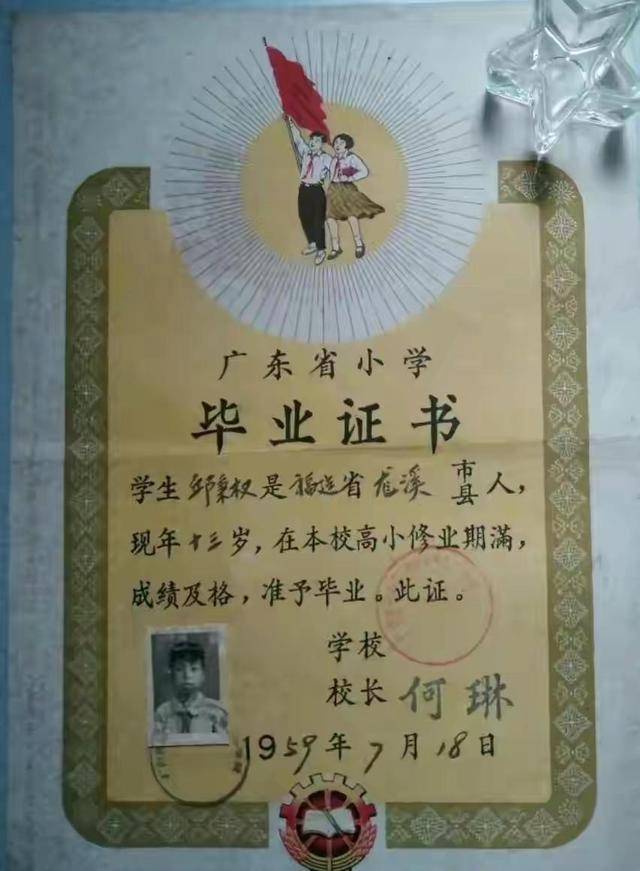 广东省小学
毕业证书
学生邱秉权是福建省龙溪市县人，
现年十三岁，在本校高小修业期满，
成绩及格，准予毕业。此证。
学校
校长 何琳
1959年7月18日